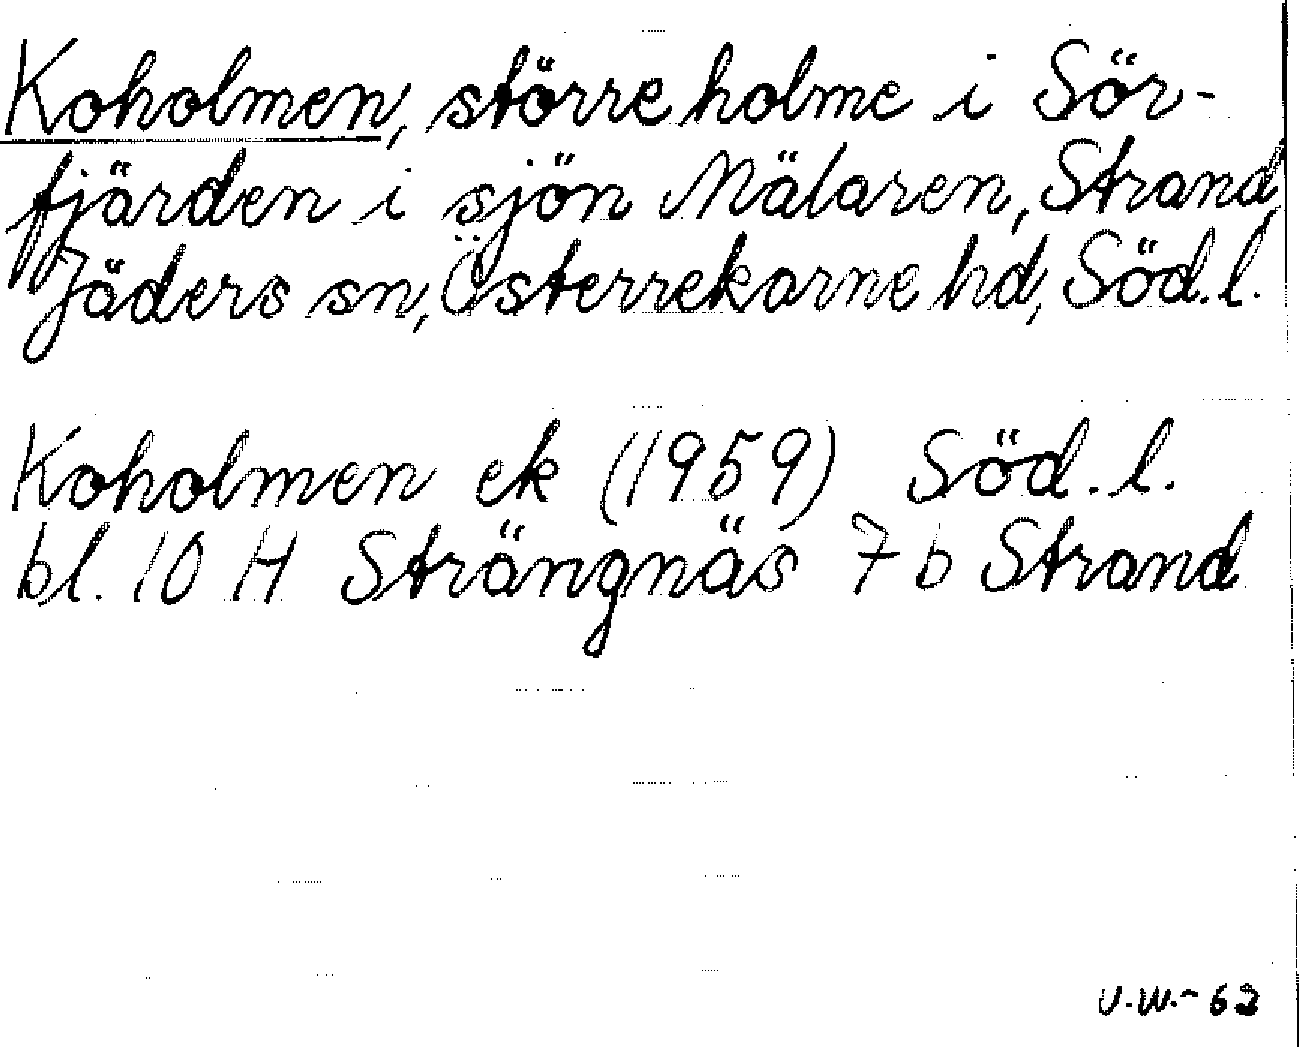 Koholmen, större holme i Sör-
fjärden i sjön Mälaren, Strand,
Jäders sn, Österrekarne hd, Söd. l.
Koholmen ek (1959) Söd. l.
bl. 10 H Strängnäs 7 b Strand
U.W.-62